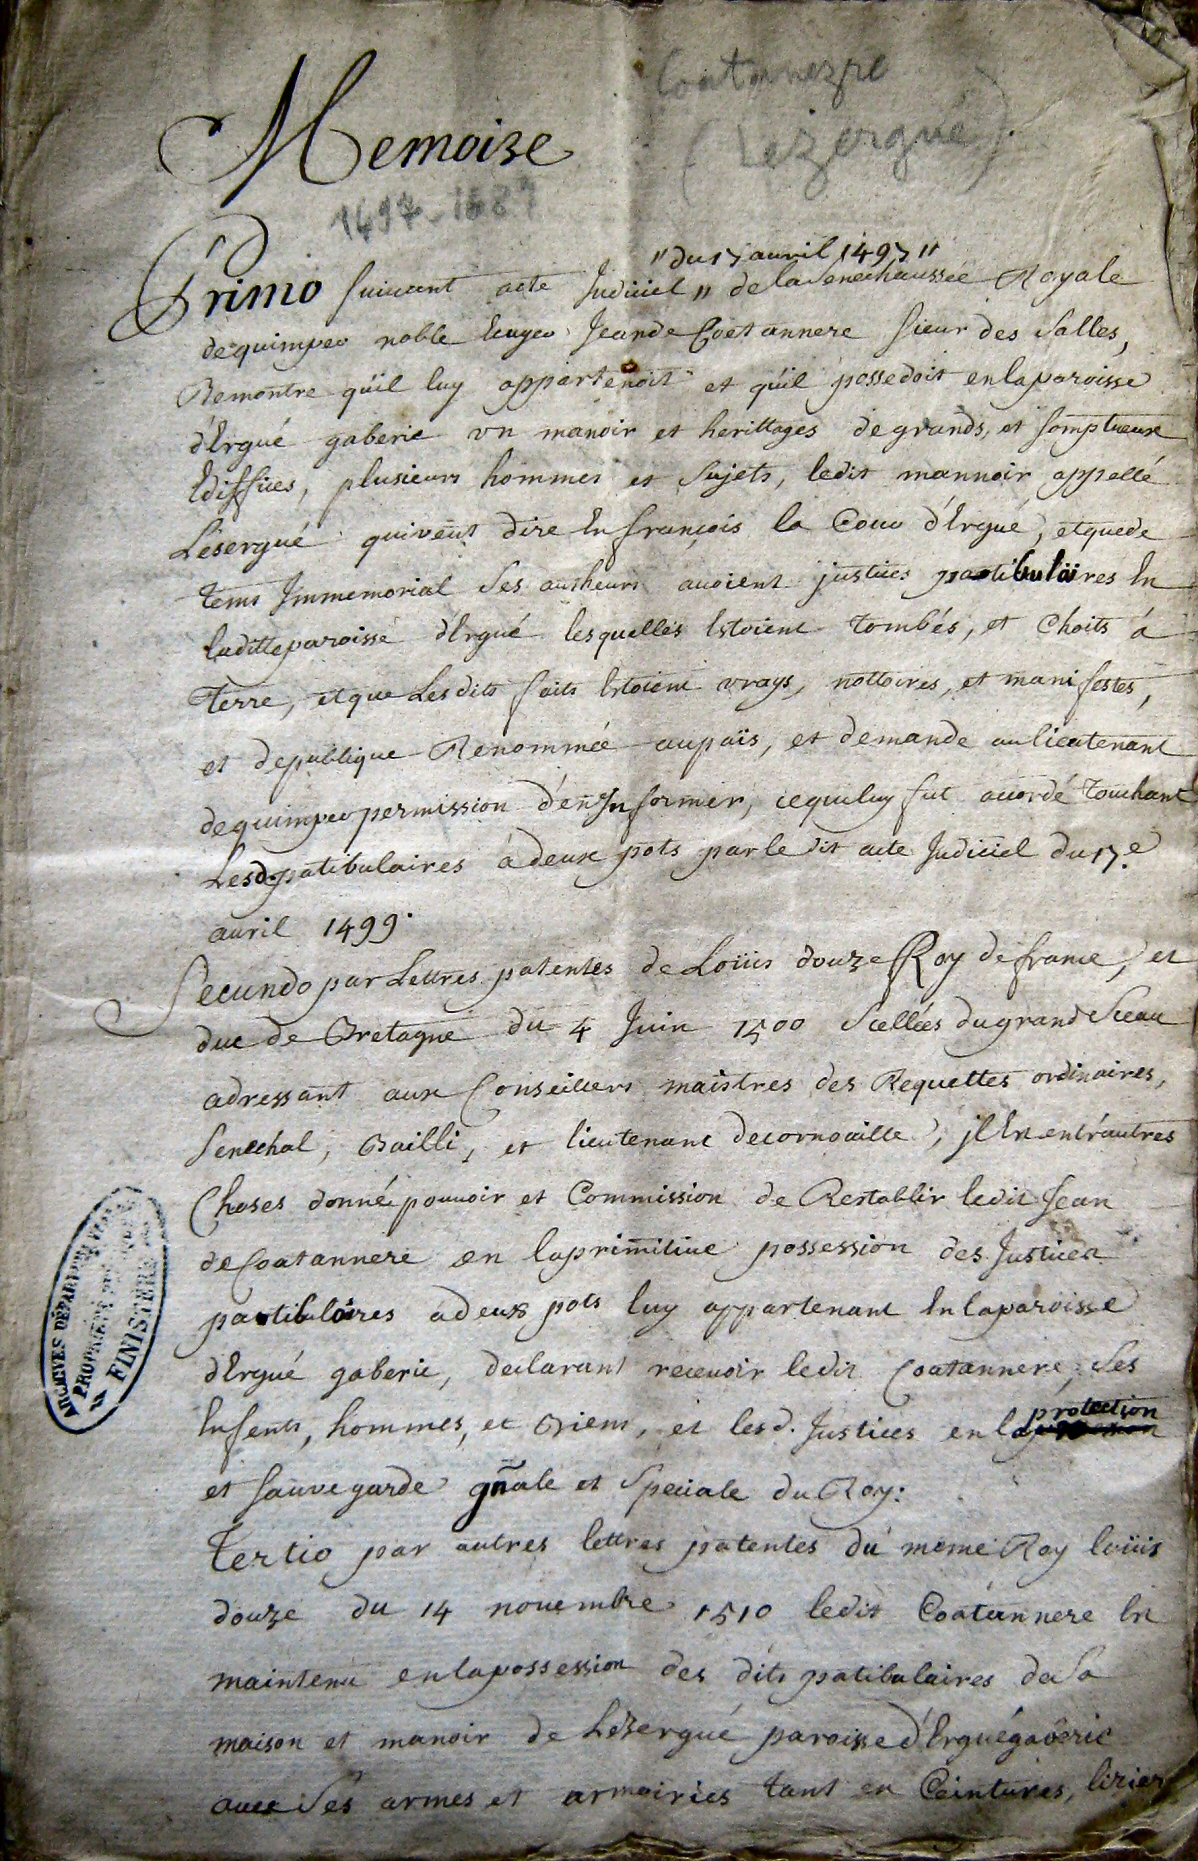 Coatannezre
(Lezergué)
Memoire
1497-1687
"du 17 avril 1497"
Primo suivant acte Judiciel " de la Senechaussée Royale
de quimper noble Ecuyer Jean de Coetannere sieur des Salles,
Remontre qu'il luy appartenoit et qu'il possedoit en la paroisse
d'Ergué gaberic un manoir et herittages de grands, et somptueux
Ediffices, plusieurs hommes et sujets, ledit mannoir appellé
Lésergué qui veut dire En françois la Cour d'Ergué, et que de
tems Immemorial ses autheurs avoient justices patibulaires En
laditte paroisse d'Ergué lesquelles Estoient tombés, et Choits á
Terre, et que Lesdits faits Estoient vrays, nottoires, et manifestes,
et de publique Renommée au païs, et demande au lieutenant
de quimper permission d'en Informer, ce qui luy fut accordé touchant
Lesd. patibulaires á deux pots par ledit acte Judiciel du 17.e
avril 1499.
Secundo par Lettres patentes de Loüis douze Roy de france, et
duc de Bretagne du 4 Juin 1500 Scellées du grand Sceau
adressant aux Conseillers maistres des Requettes ordinaires,
Senechal, Bailli, et lieutenant de cornouaille, il En entr'autres
Choses donné pouvoir et Commission de Restablir ledit Jean
de Coatannere en la primitive possession des Justices
patibulaires a deux pots luy appartenant En la paroisse
d'Ergué gaberic, declarant recevoir ledit Coatannere, ses
Enfents, hommes, et Biens, et lesd. Justices en la protection
et sauvegarde gñale et speciale du Roy:
Tertio par autres lettres patentes du meme Roy loüis
douze du 14 novembre 1510 ledit Coatannere En
maintenu en la possession des dits patibulaires de sa
maison et manoir de Lézergué paroisse d'Ergué gaberic
avec ses armes et armoiries tant en Ceintures, lizier
ARCHIVES DÉPARTEMENTALES
PROPRIÉTÉ
FINISTÈRE